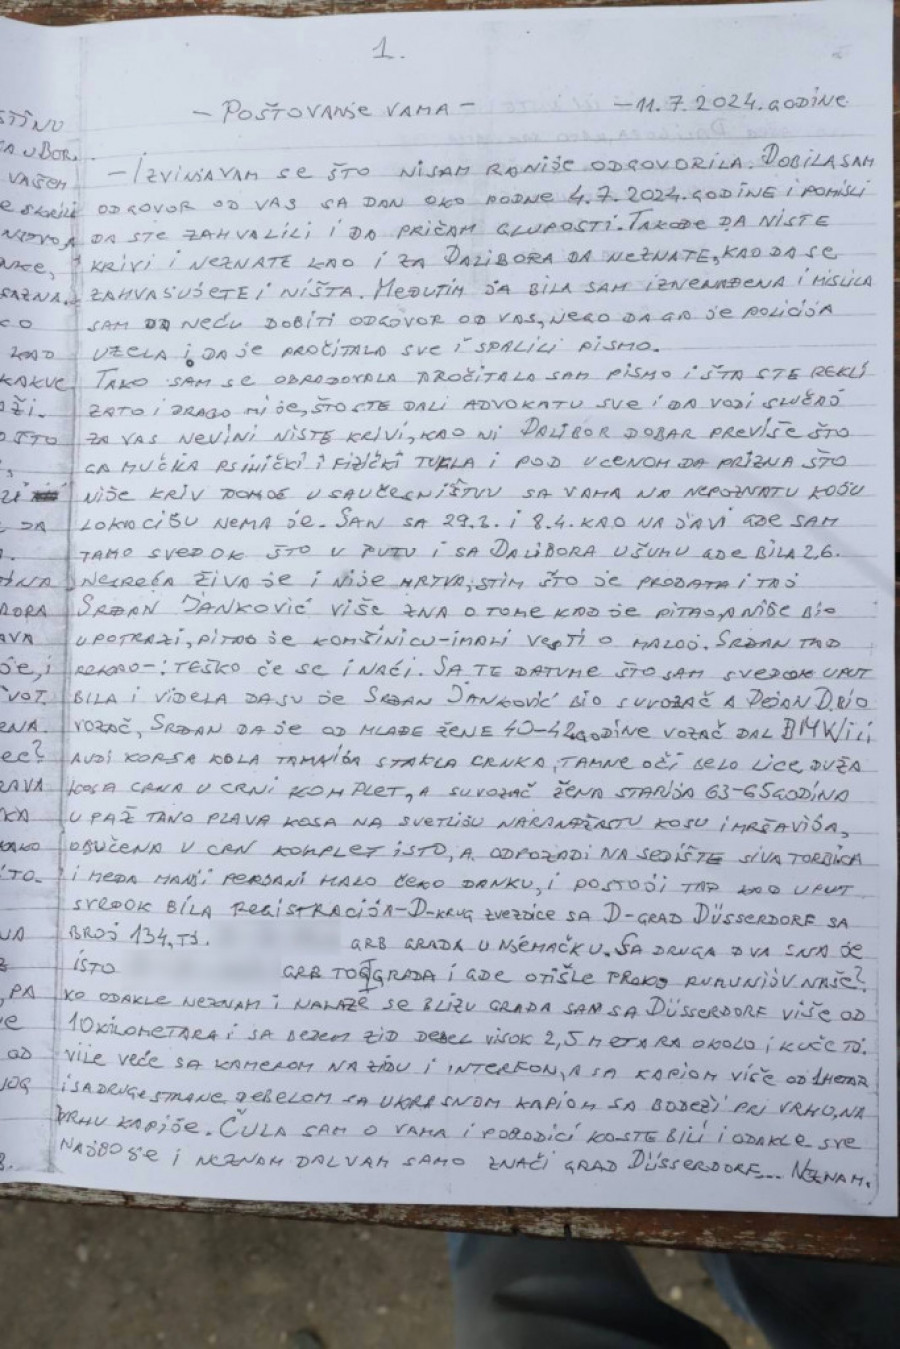 1.
- POŠTOVANJE VAMA - - 11.7.2024. GODINE.
- IZVINJAVAM SE ŠTO NISAM RANIJE ODGOVORILA. DOBILA SAM
ODGOVOR OD VAS SA DAN OKO PODNE 4.7.2024. GODINE I POMISLI
DA STE ZAHVALILI I DA PRIČAM GLUPOSTI. TAKOĐE DA NISTE
KRIVI I NEZNATE KAO I ZA DALIBORA DA NEZNATE, KAO DA SE
ZAHVAŠUJETE I NIŠTA. MEĐUTIM JA BILA SAM IZNENAĐENA I MISLILA
SAM DA NEĆU DOBITI ODGOVOR OD VAS, NEGO DA GA JE POLICIJA
UZELA I DA JE PROČITALA SVE I SPALILI PISMO.
TAKO SAM SE OBRADOVALA PROČITALA SAM PISMO I ŠTA STE REKLI
ZATO I DRAGO MI JE, ŠTO STE DALI ADVOKATU SVE I DA VODI SLUČAJ
ZA VAS NEVINI NISTE KRIVI, KAO NI DALIBOR DOBAR PREVIŠE ŠTO
GA MUČILA PSIHIČKI I FIZIČKI TUKLA I POD UCENOM DA PRIZNA ŠTO
NIJE KRIV U SAUČESNIŠTVU SA VAMA NA NEPOZNATU KOJU
LOKACIJU NEMA JE. SAN SA 29.3. I 8.4. KAO NA JAVI GDE SAM
TAMO SVEDOK ŠTO U PUTU I SA DALIBORA U ŠUMU GDE BILA 2,6.
NESREĆA ŽIVA JE I NIJE MRTVA, STIM ŠTO JE PRODATA I TAJ
SRĐAN JANKOVIĆ VIŠE ZNA O TOME KAD JE PITAO, A NIJE BIO
U POTRAZI, PITAO JE KOMŠINICU - IMALI VESTI O MALOJ. SRĐAN TAD
REKAO -: TEŠKO ĆE SE I NAĆI. SA TE DATUME ŠTO SAM SVEDOK UPUT
BILA I VIDELA DA SU JE SRĐAN JANKOVIĆ BIO SUVOZAČ A DEJAN D. BIO
VOZAČ, SRĐAN DA JE OD MLADE ŽENE 40-42 GODINE VOZAČ DAL BMW ILI
AUDI KORSA KOLA TAMNIJA STAKLA CRNKA, TAMNE OČI BELO LICE, DUŽA
KOSA CRNA U CRNI KOMPLET, A SUVOZAČ ŽENA STARIJA 63-65 GODINA
PLAVA KOSA NA SVETLIJU NARANDŽASTU KOSU I MRŠAVIJA,
OBUČENA U CRN KOMPLET ISTO, A ODPOZADI NA SEDIŠTE SIVA TORBICA
I MEDA MALO DANKU, I POSTOJI TAD KAO UPUT
SVEDOK BILA REGISTRACIJA - D - KRUG ZVEZDICE SA D - GRAD DÜSSERDORF SA
BROJ 134, TJ. GRB GRADA U NJEMAČKU. SA DRUGA DVA SNA JE
ISTO GRB TOG GRADA I GDE OTIŠLE PREKO RUMUNIJU NAŠE?
KO ODAKLE NEZNAM I NALAZE SE BLIZU GRADA SAM SA DÜSSERDORF VIŠE OD
10 KILOMETARA I SA BEZEM ZID DEBEL VISOK 2,5 METARA OKOLO I KUĆE TJ.
VILE VEĆE SA KAMEROM NA ZIDU I INTERFON, A SA KAPIOM VIŠE OD 1 METAR
I SA DRUGE STRANE DEBELOM SA UKRASNOM KAPIOM SA BODEŽI PRI VRHU, NA
VRHU KAPIJE. ČULA SAM O VAMA I PORODICI KO STE BILI I ODAKLE SVE
NAJBOJE I NEZNAM DAL VAM SAMO ZNAČI GRAD DÜSSERDORF... NEZNAM.